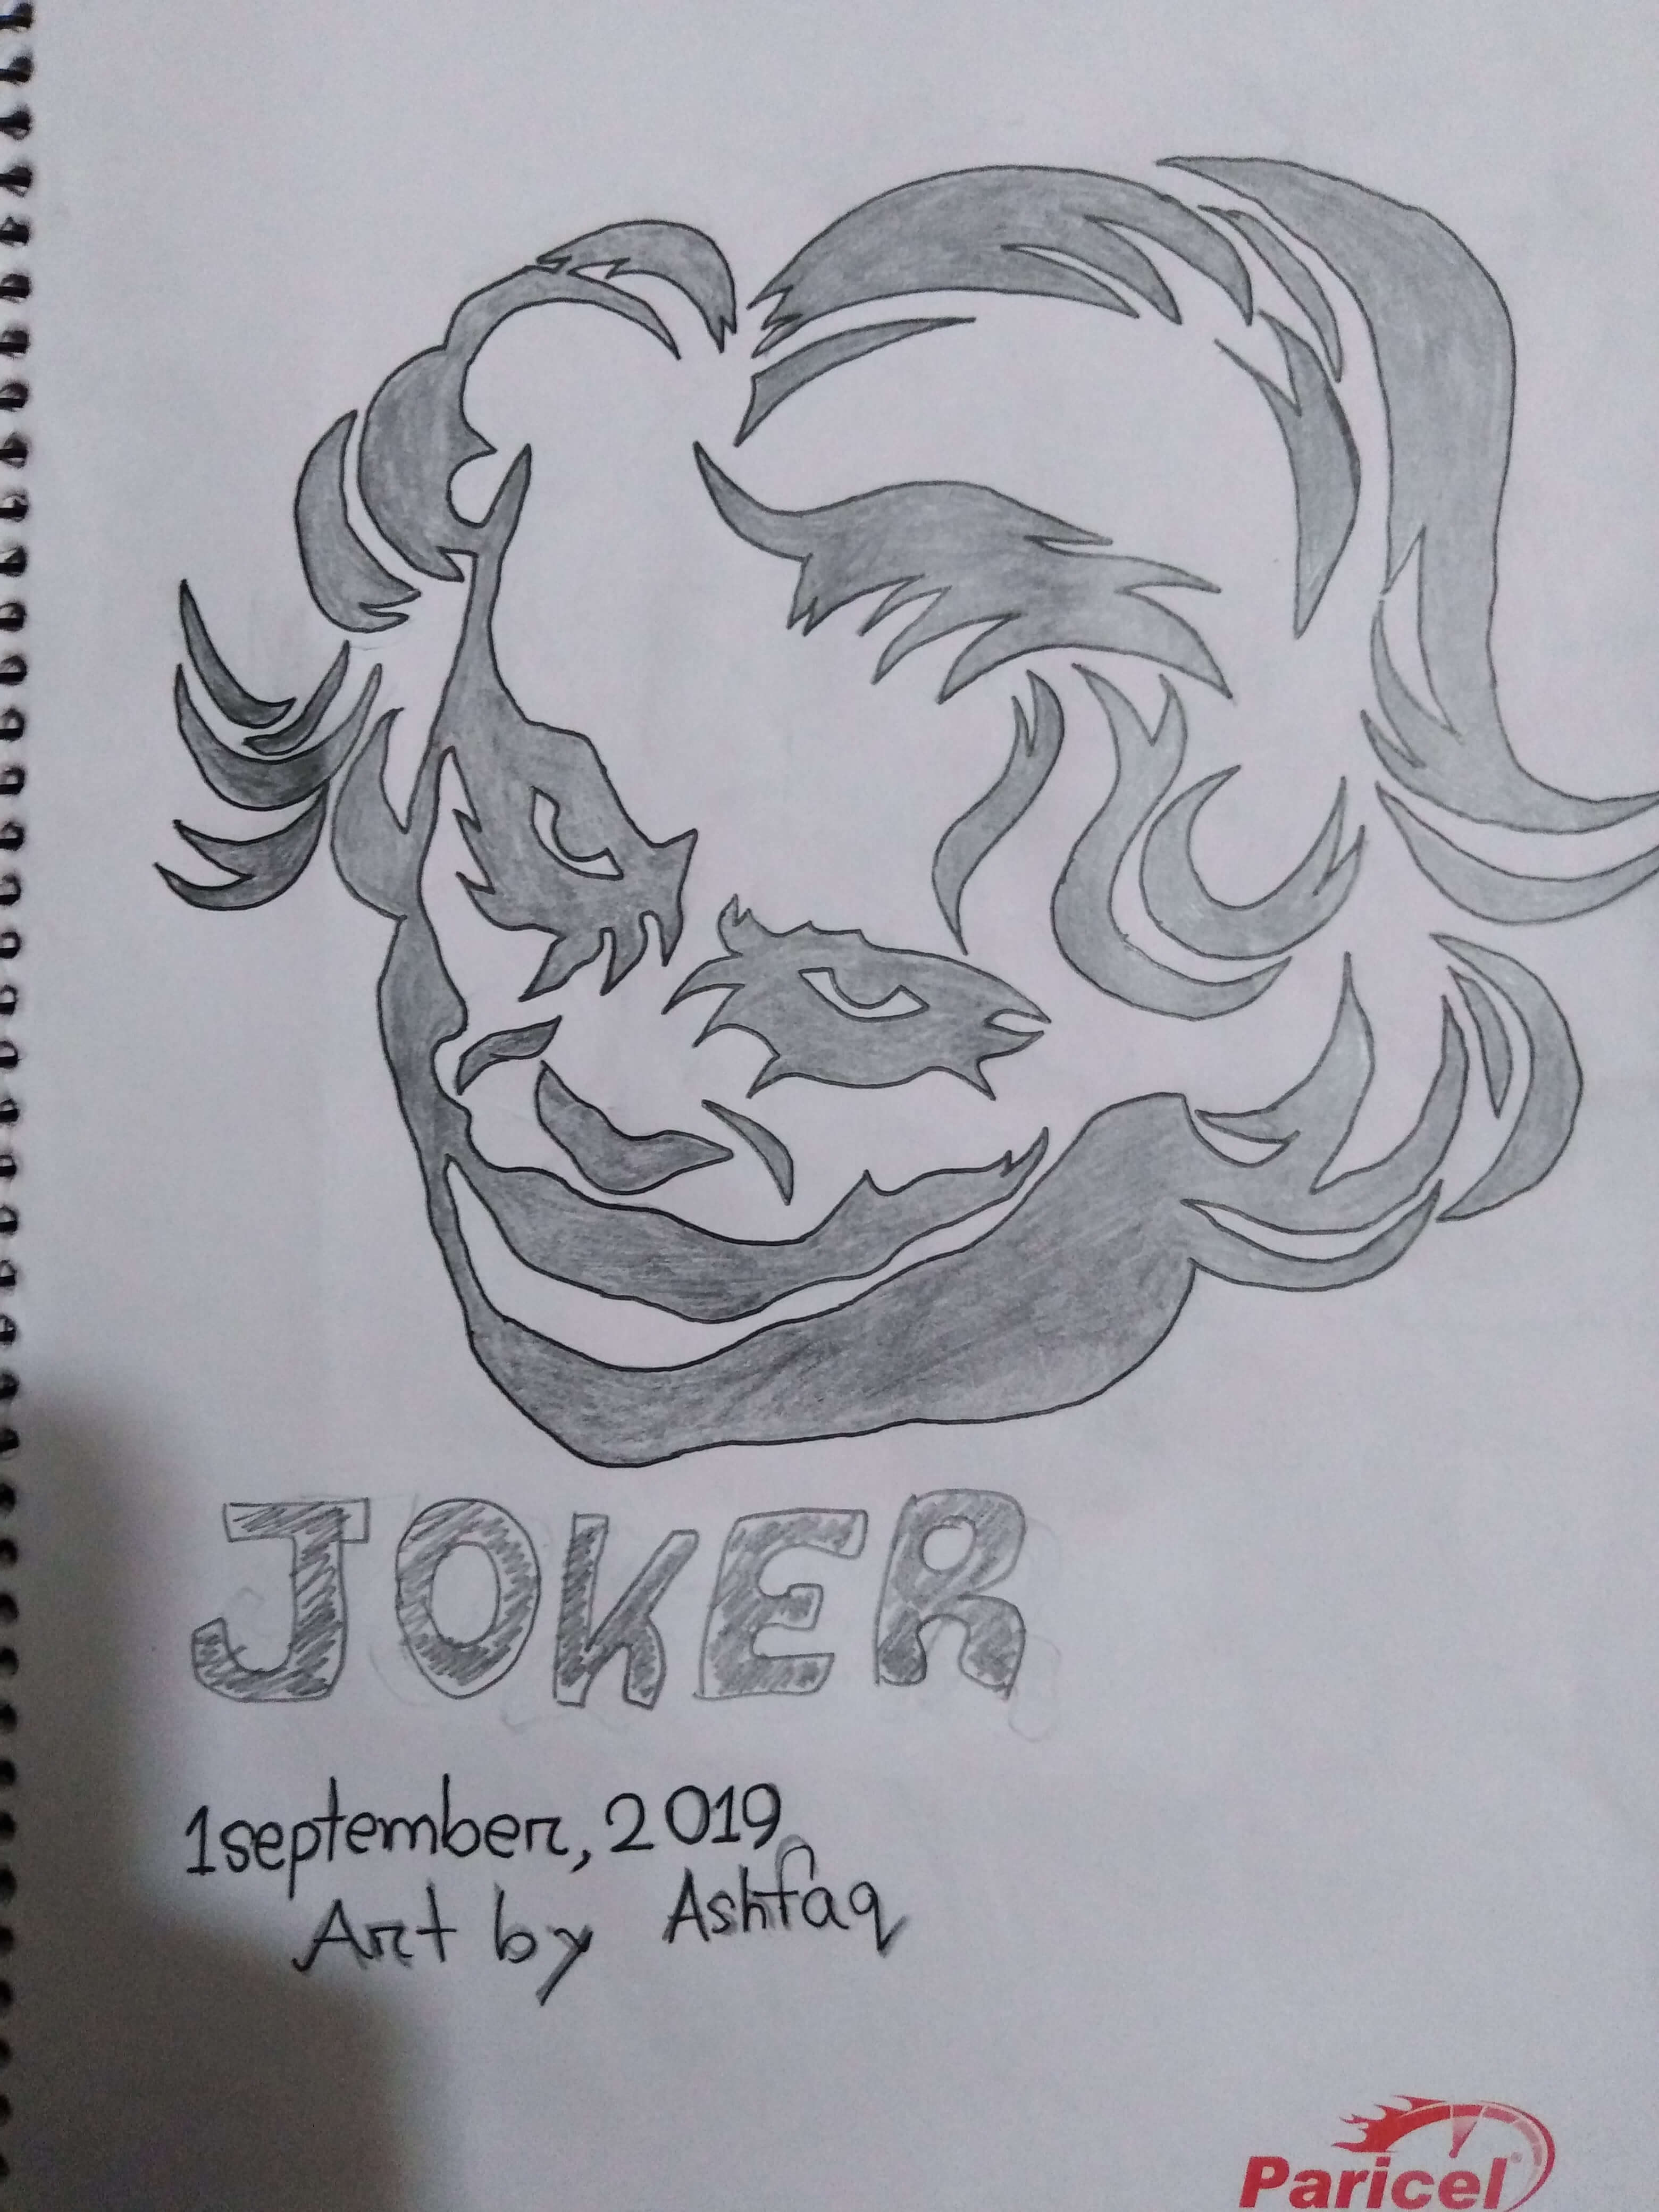 JOKER
1september, 2019
Art by Ashfaq
Paricel